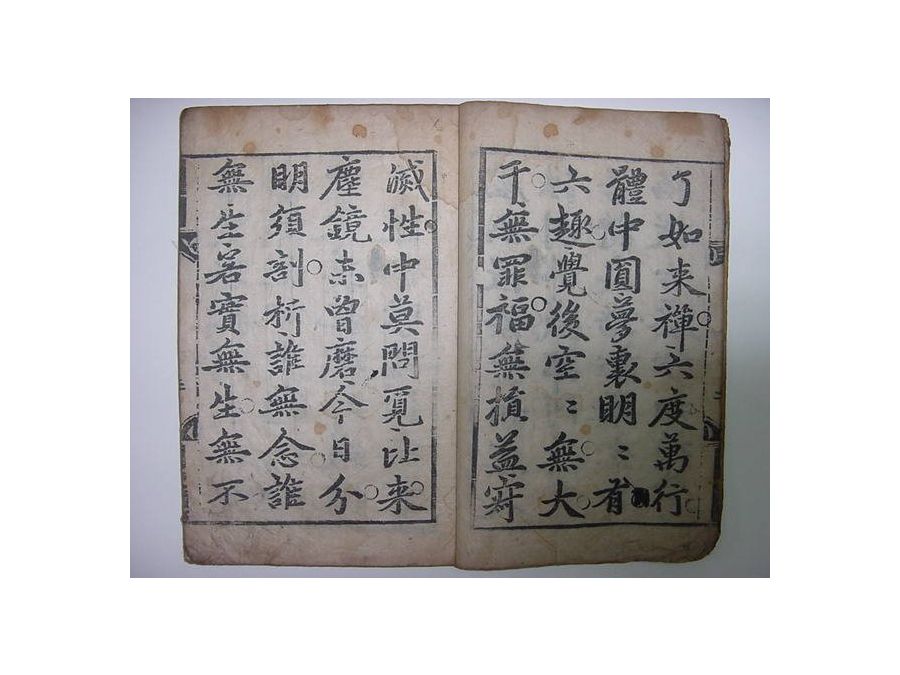 了如来禪六度萬行
體中圓夢裏明〻有
六趣覺後空〻無大
千無罪福無損益寂
滅性中莫問覓比来
塵鏡未曾磨今日分
明須剖析誰無念誰
無生若實無生無不